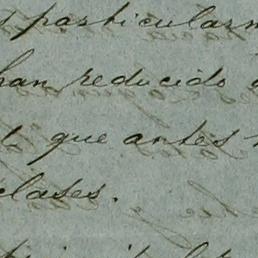 particularm
han reducido
que antes
clases.